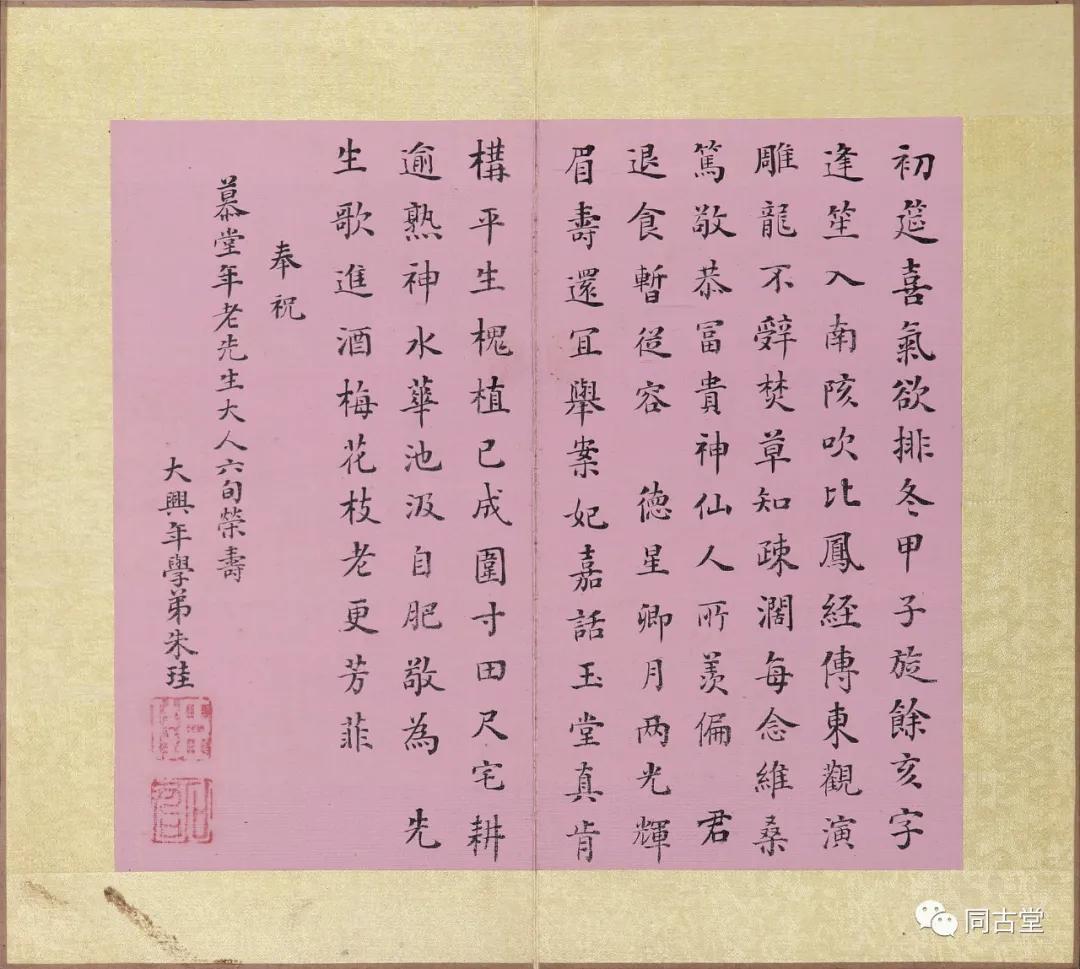 初筵喜氣欲排冬甲子旋餘亥字
逢笙入南陔吹比鳳經傳東觀演
雕龍不辭焚草知疎濶每念維桑
篤敬恭冨貴神仙人所羨偏 君
退食暫從容 德星卿月两光輝
眉壽還冝舉案妃嘉話玉堂真肯
構平生槐植已成圍寸田尺宅耕
逾熟神水華池汲自肥敬為 先
生歌進酒梅花枝老更芳菲
奉祝
慕堂年老先生大人六旬榮壽
大興年學弟朱珪
同古堂